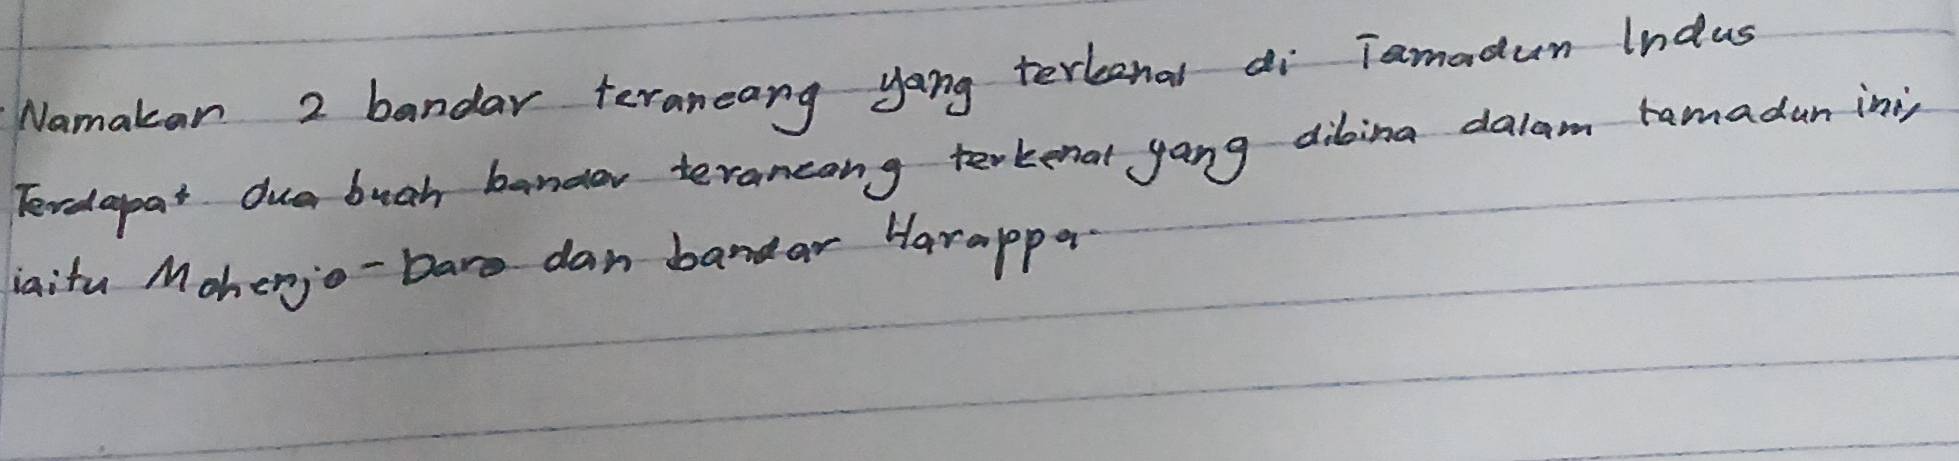 Namakan 2 bandar terancang yang terkenal di Tamadun Indus
Terdapat dua buah bandar terancang terkenal yang dibina dalam tamadun ini,
iaitu Mohenjo-Daro dan bandar Harappa.